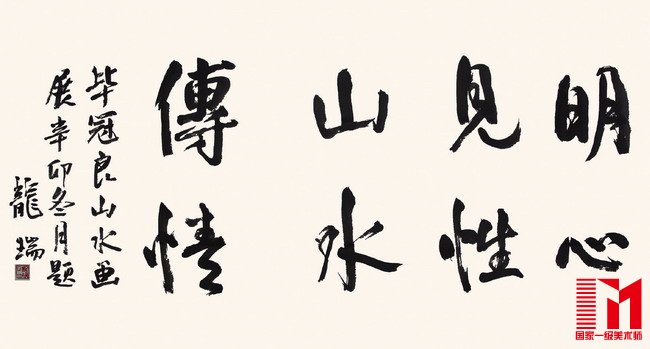 明心
見性
山水
傳情
毕冠良山水画
展辛卯冬月题
龍瑞
国家一级美术师